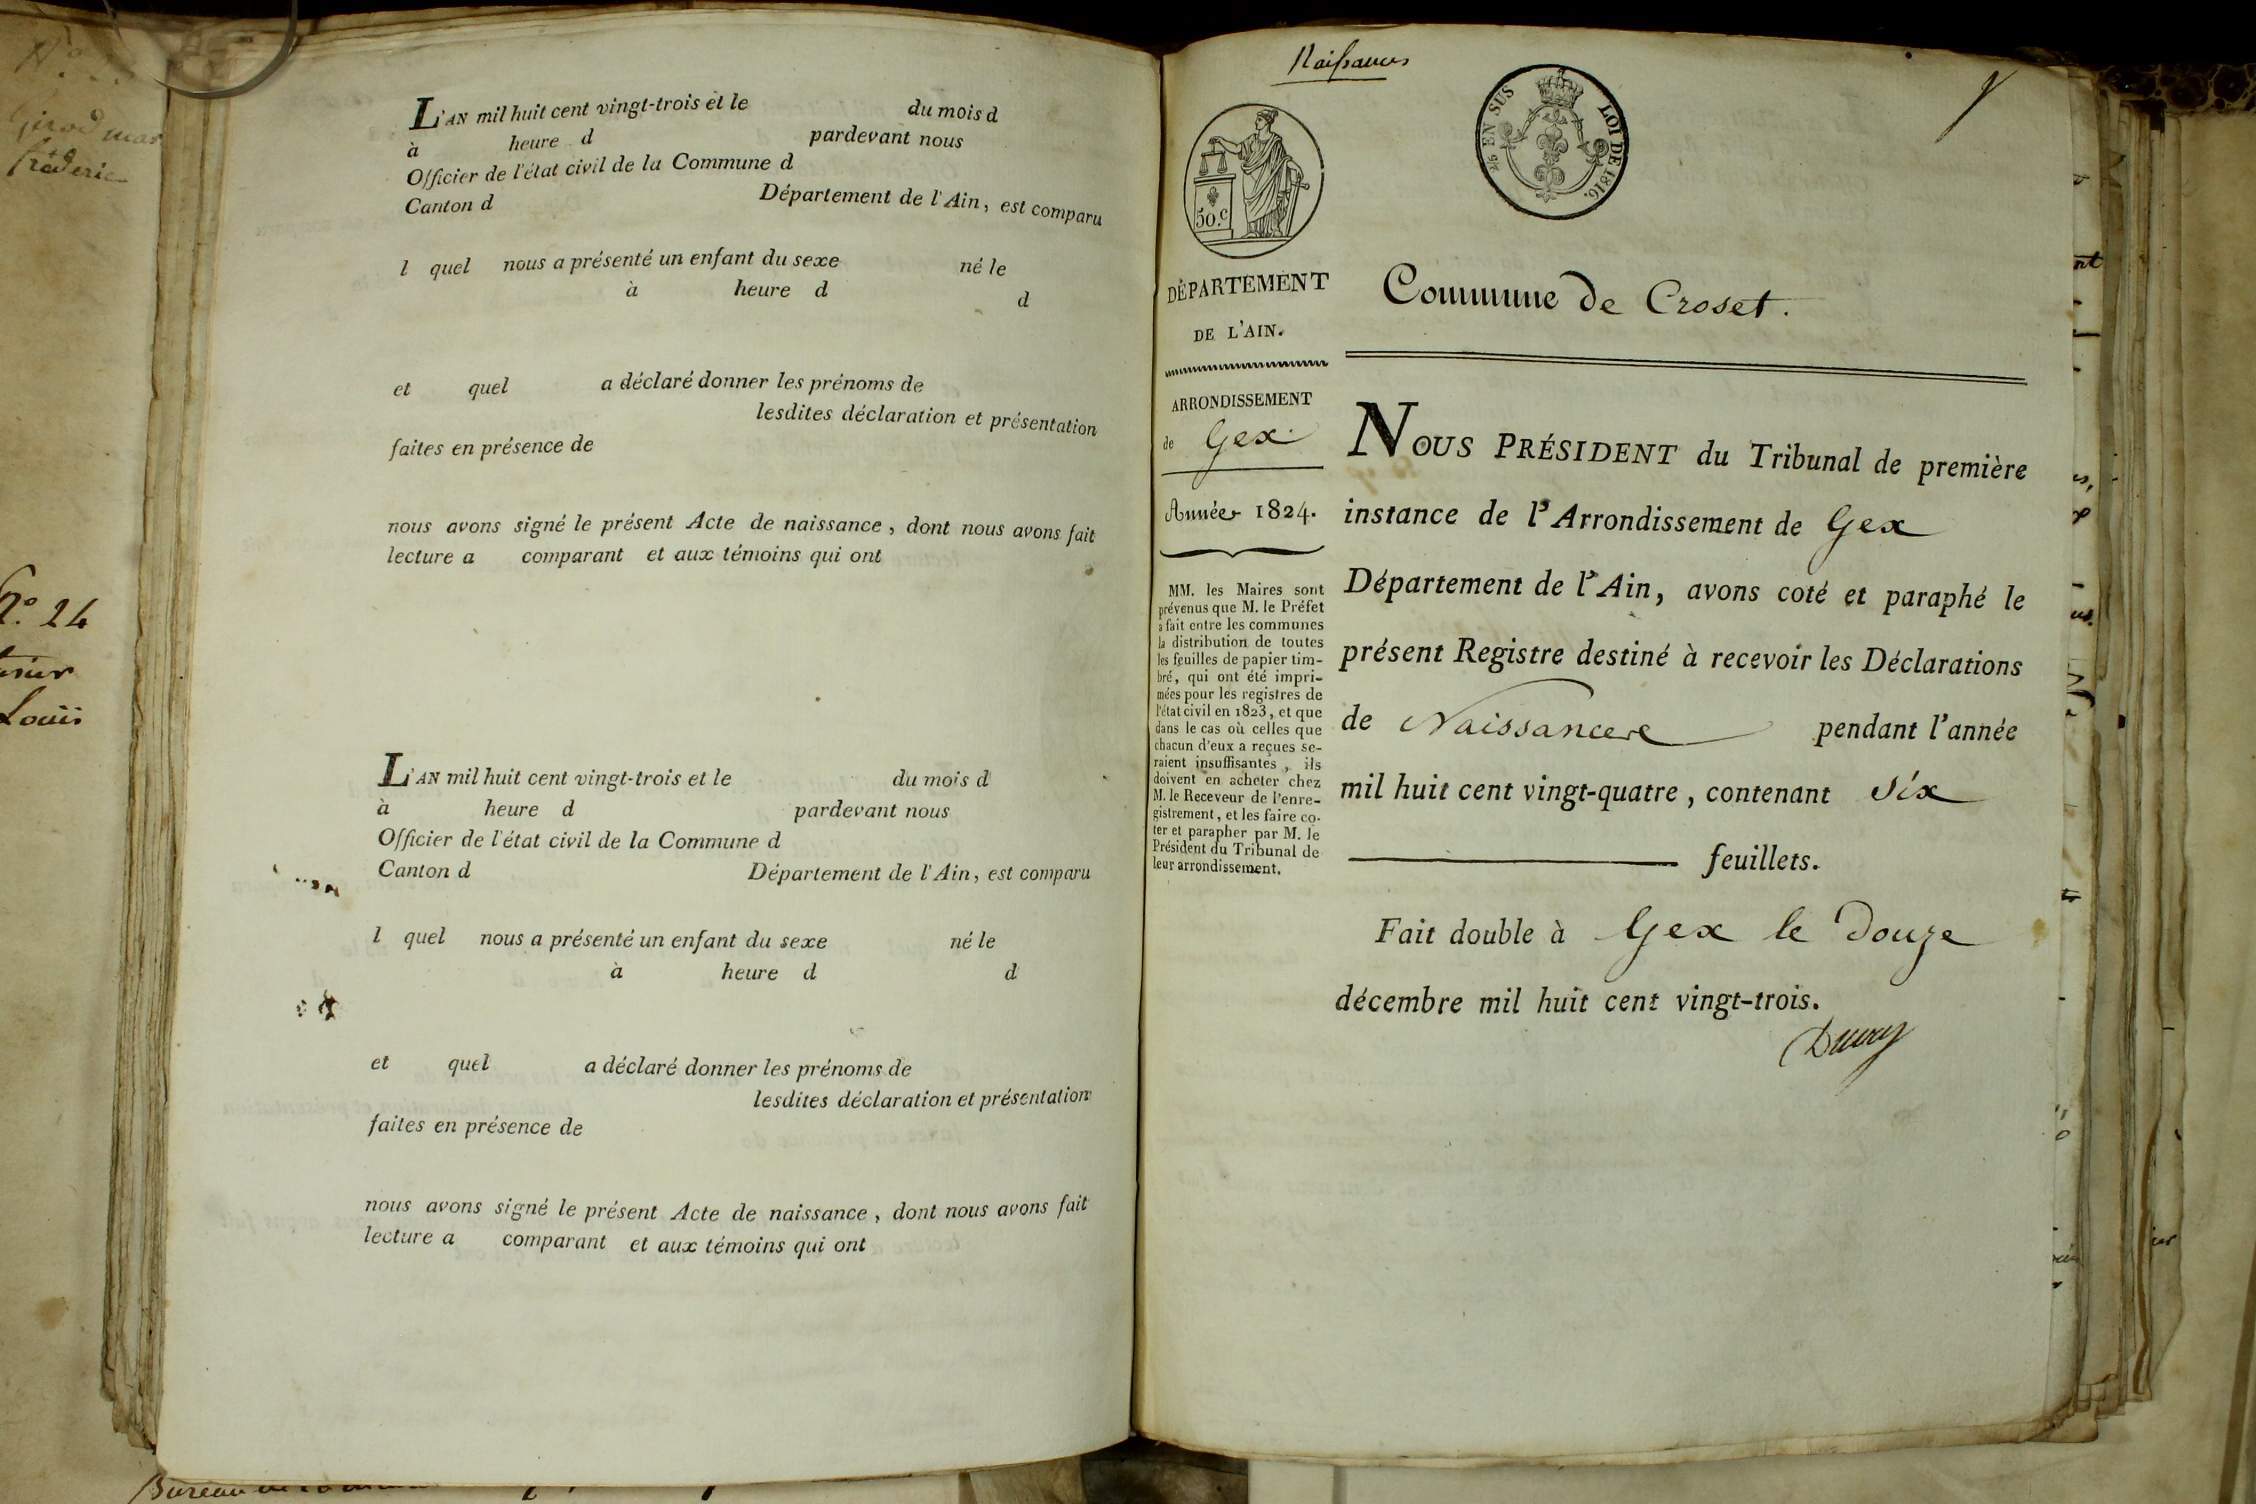 Girod
Frederic
N.° 24
Louis
L'AN mil huit cent vingt-trois et le du mois d
à heure d pardevant nous
Officier de l'état civil de la Commune d
Canton d Département de l'Ain, est comparu
l quel nous a présenté un enfant du sexe né le
à heure d d
et quel a déclaré donner les prénoms de
lesdites déclaration et présentation
faites en présence de
nous avons signé le présent Acte de naissance, dont nous avons fait
lecture a comparant et aux témoins qui ont
L'AN mil huit cent vingt-trois et le du mois d
à heure d pardevant nous
Officier de l'état civil de la Commune d
Canton d Département de l'Ain, est comparu
l quel nous a présenté un enfant du sexe né le
à heure d d
et quel a déclaré donner les prénoms de
lesdites déclaration et présentation
faites en présence de
nous avons signé le présent Acte de naissance, dont nous avons fait
lecture a comparant et aux témoins qui ont
Bureau
Naissances
EN SUS
LOI DE 1816.
50.c
DÉPARTEMENT
DE L'AIN.
ARRONDISSEMENT
de Gex.
Année 1824.
MM. les Maires sont
prévenus que M. le Préfet
a fait entre les communes
la distribution de toutes
les feuilles de papier tim-
bré, qui ont été impri-
mées pour les registres de
l'état civil en 1823, et que
dans le cas où celles que
chacun d'eux a reçues se-
raient insuffisantes, ils
doivent en acheter chez
M. le Receveur de l'enre-
gistrement, et les faire co-
ter et parapher par M. le
Président du Tribunal de
leur arrondissement.
Commune de Croset.
NOUS PRÉSIDENT du Tribunal de première
instance de l'Arrondissement de Gex
Département de l'Ain, avons coté et paraphé le
présent Registre destiné à recevoir les Déclarations
de Naissance pendant l'année
mil huit cent vingt-quatre, contenant six
feuillets.
Fait double à Gex le douze
décembre mil huit cent vingt-trois.